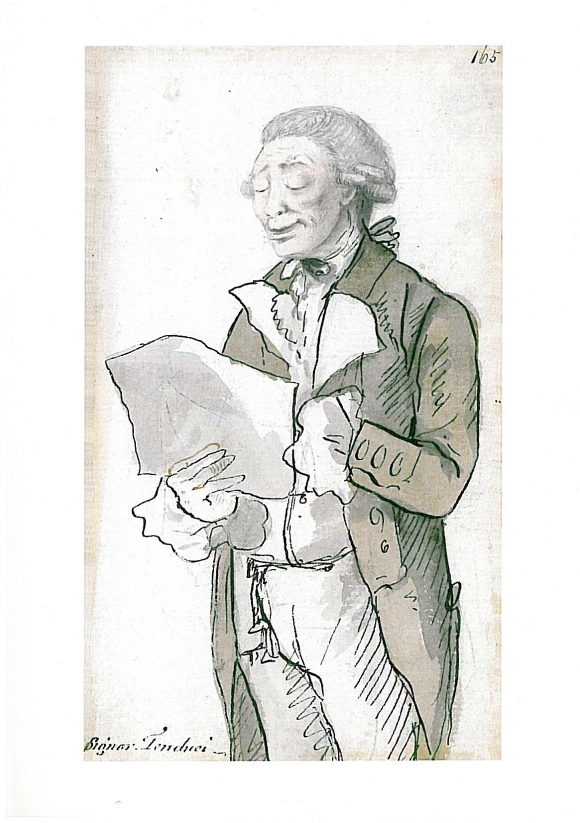 165
Signor. Tenduci